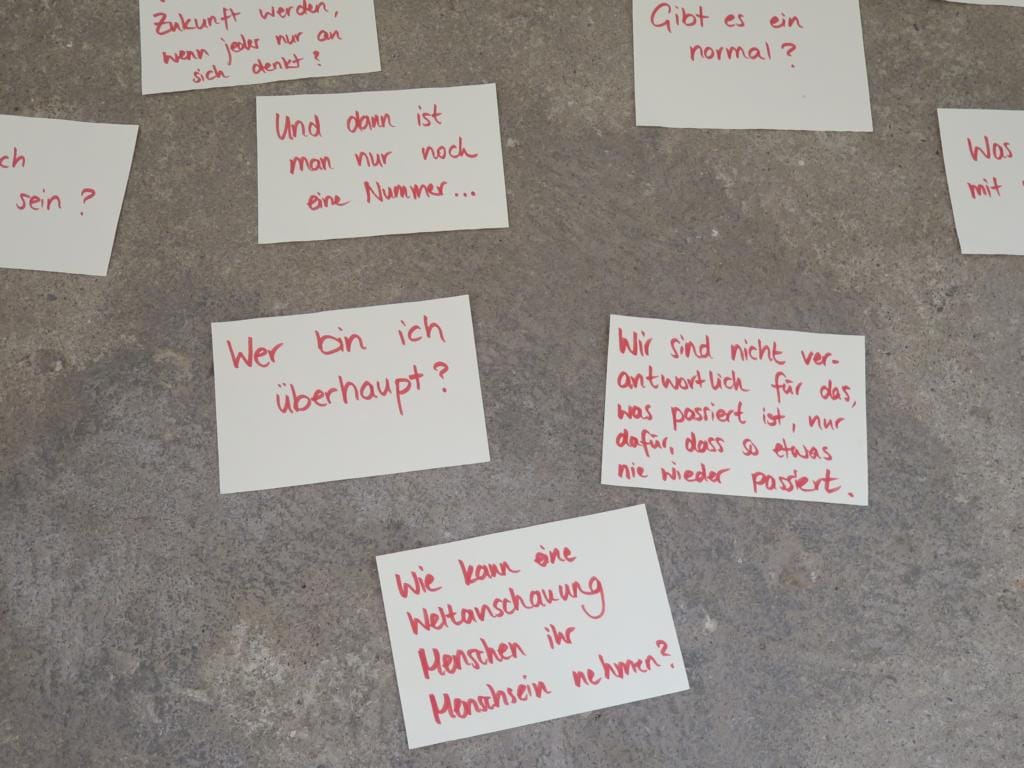 Zukunft werden,
wenn jeder nur an
sich denkt?
Gibt es ein
normal?
Und dann ist
man nur noch
eine Nummer...
ch
sein?
Was
mit
Wer bin ich
überhaupt?
Wir sind nicht ver-
antwortlich für das,
was passiert ist, nur
dafür, dass so etwas
nie wieder passiert.
Wie kann eine
Weltanschauung
Menschen ihr
Menschsein nehmen?